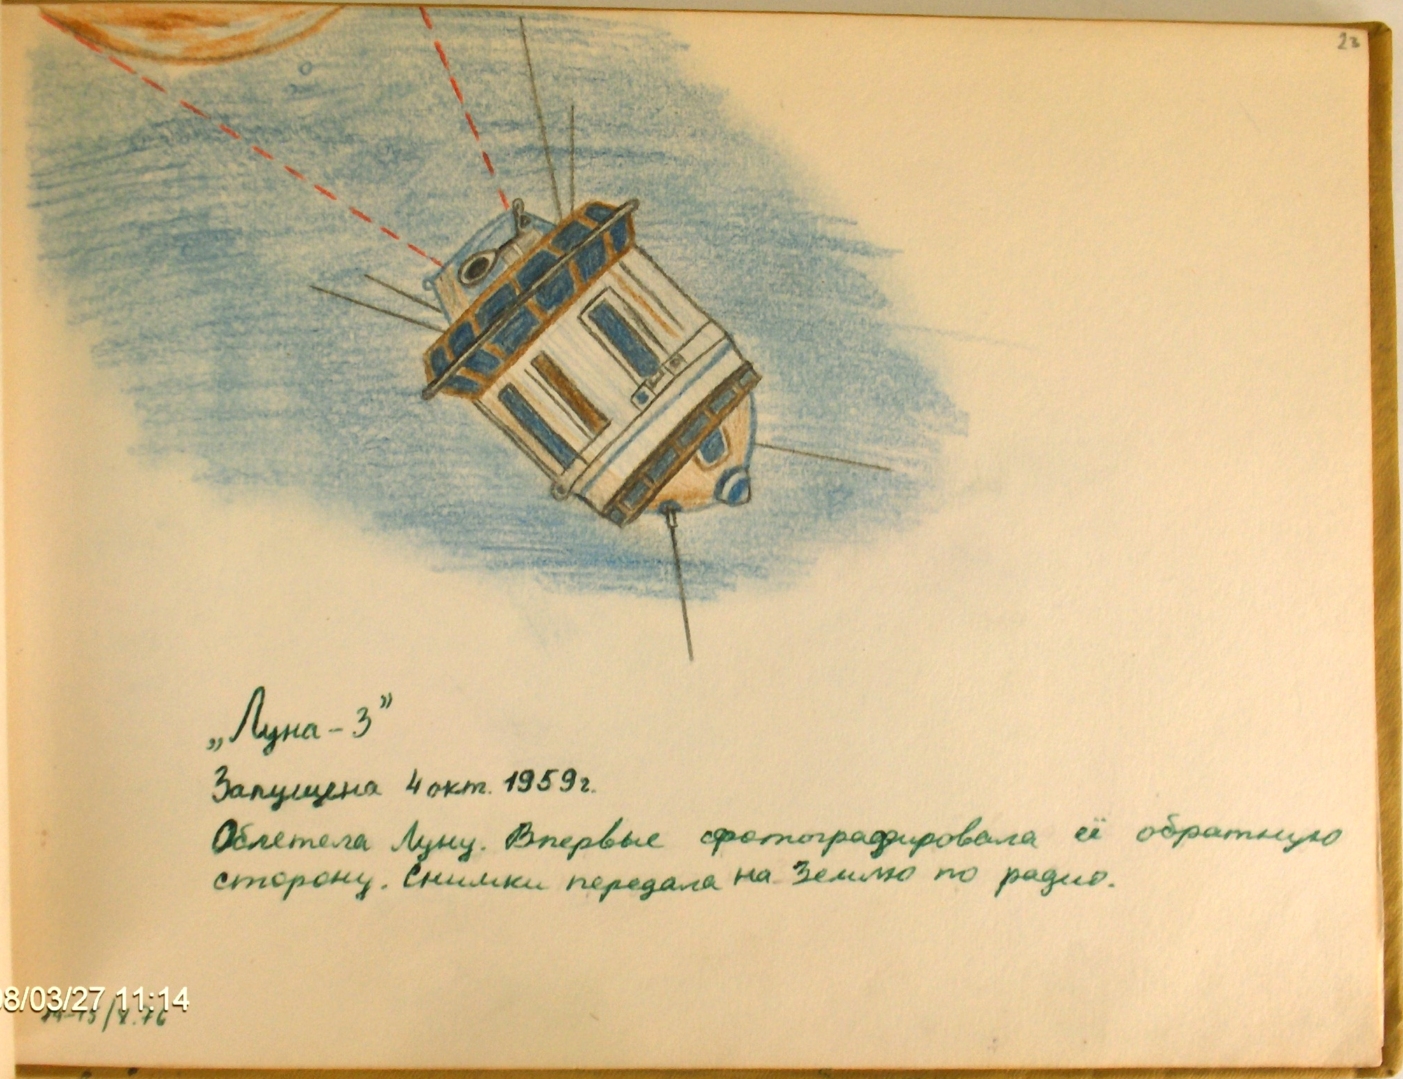 23
„Луна-3”
Запущена 4 окт. 1959г.
Облетела Луну. Впервые сфотографировала её обратную
сторону. Снимки передала на Землю по радио.
08/03/27 11:14